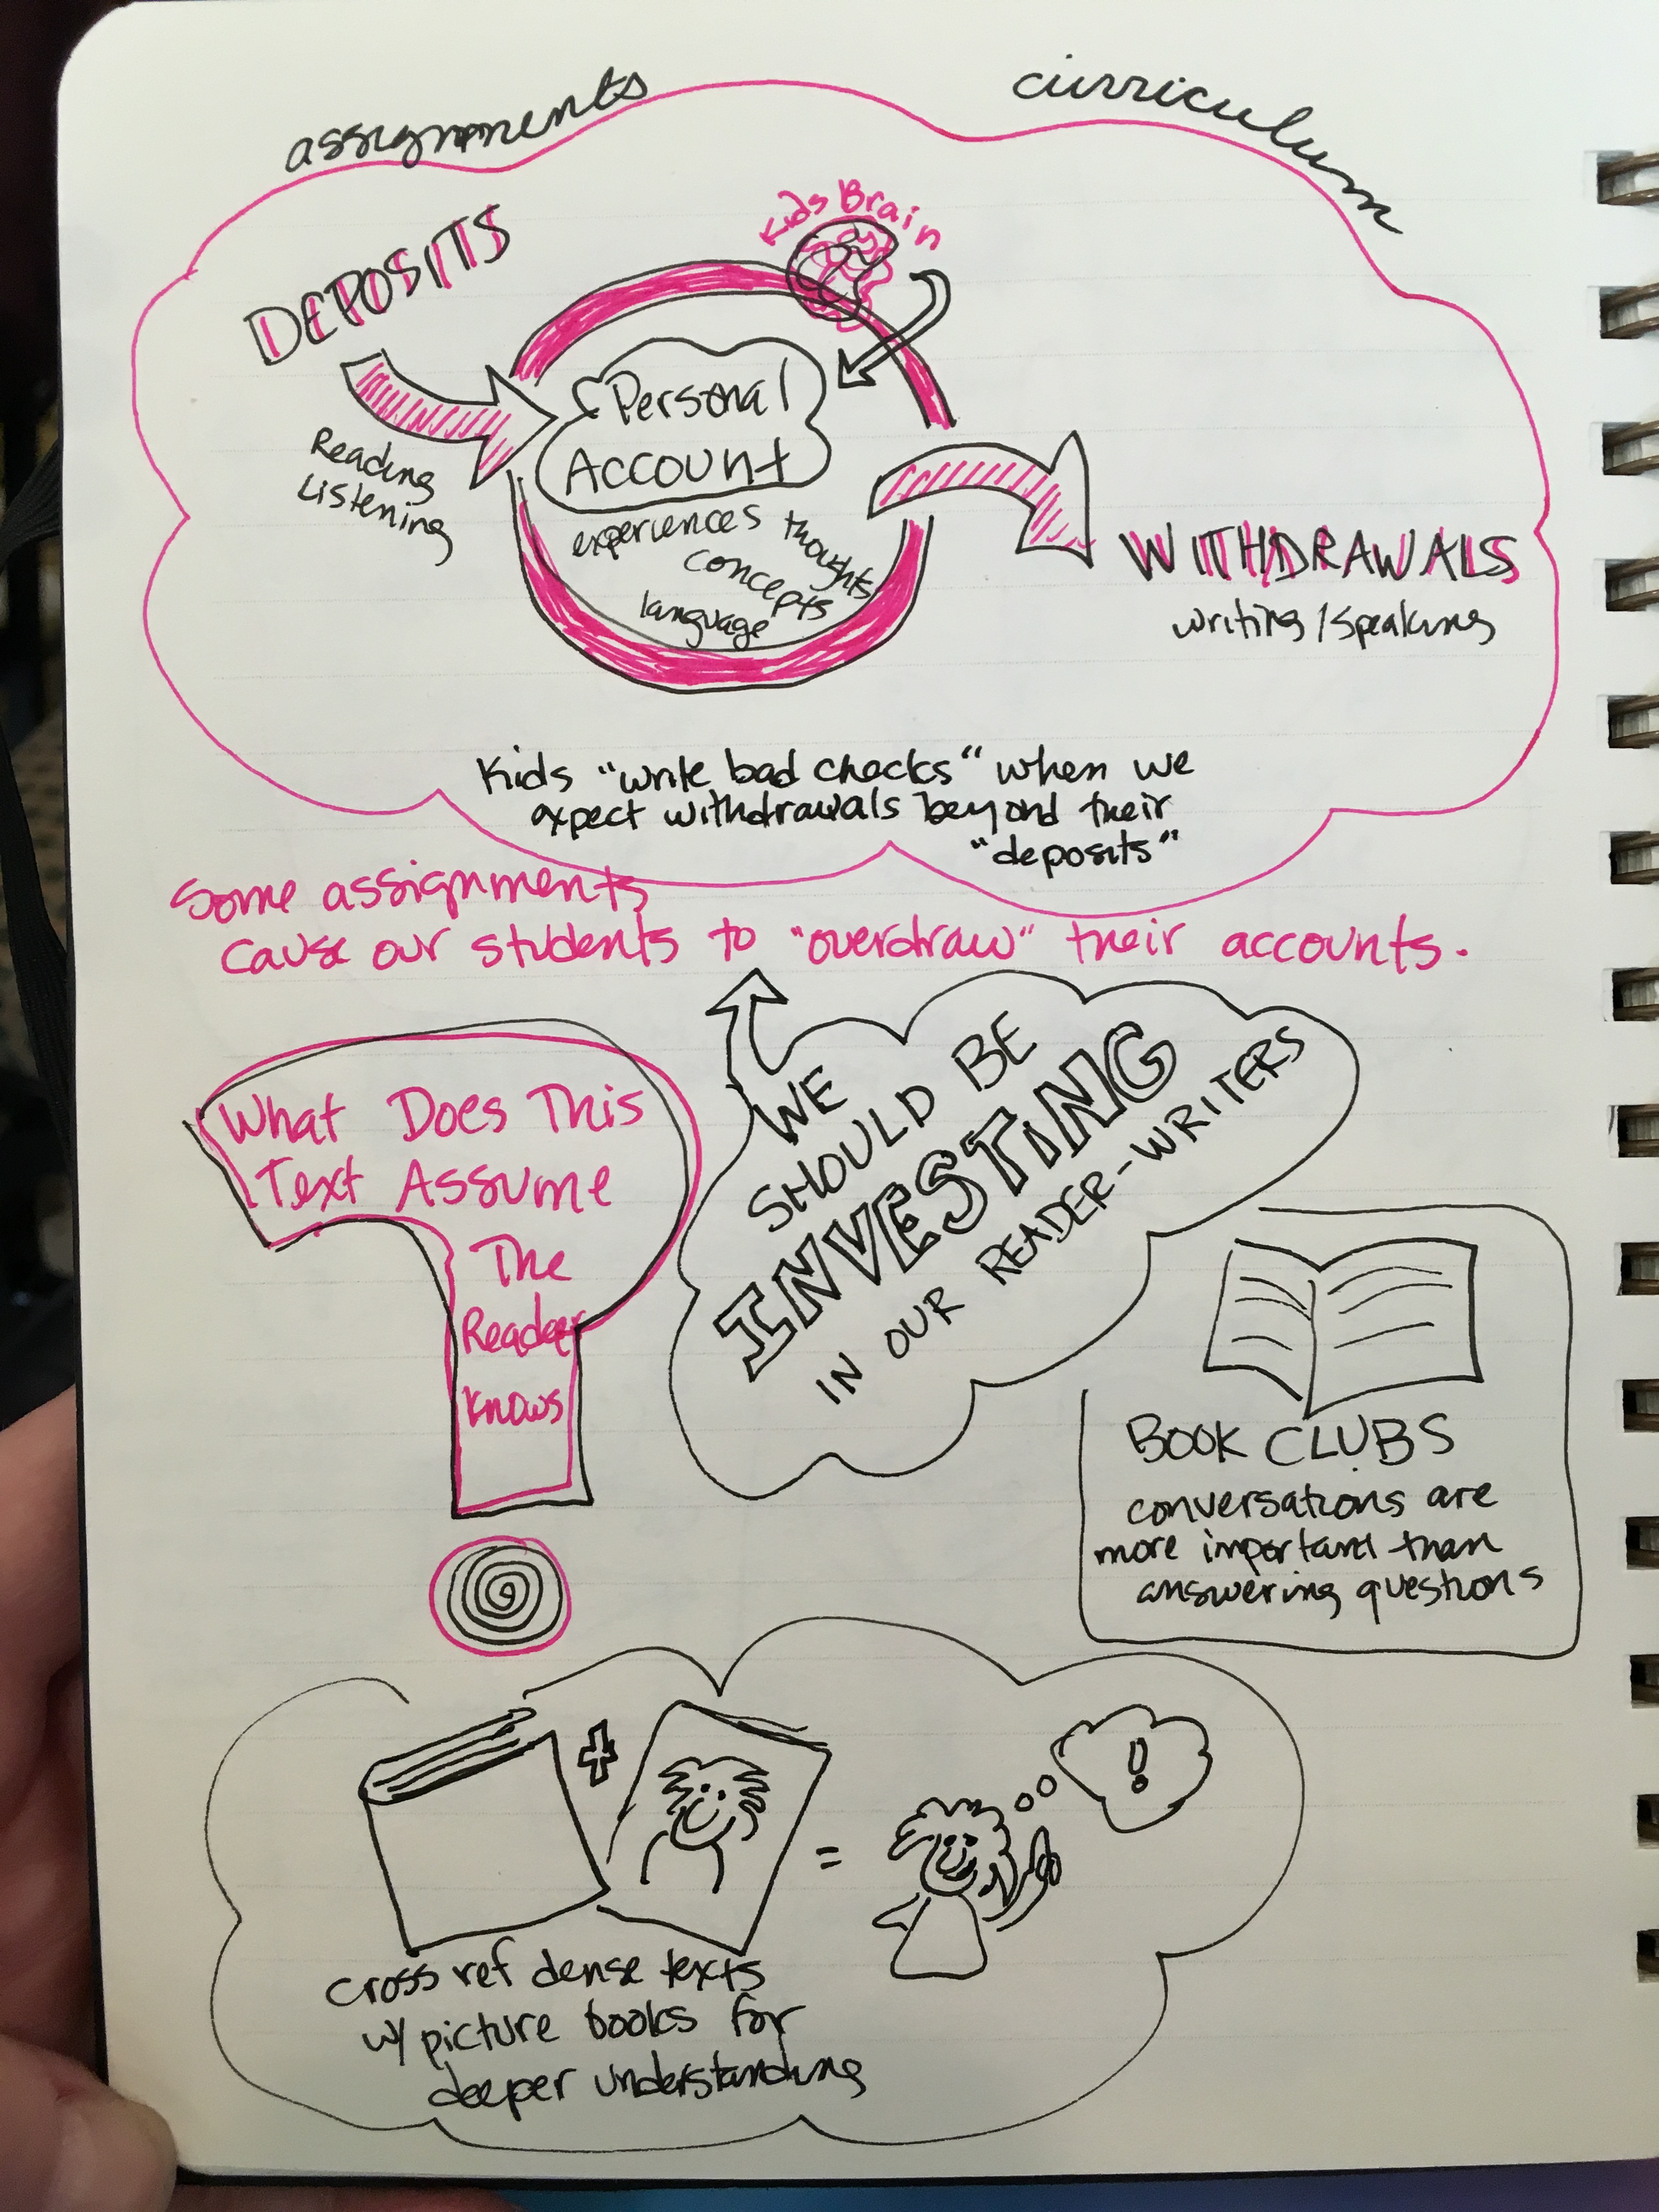 assignments
curriculum
Kids Brain
DEPOSITS
Reading
Listening
Personal
Account
experiences
thoughts
concepts
language
WITHDRAWALS
writing/speaking
Kids "write bad checks" when we
expect withdrawals beyond their
"deposits"
Some assignments
cause our students to "overdraw" their accounts.
What Does This
Text Assume
The
Reader
Knows
WE
SHOULD BE
INVESTING
IN OUR READER-WRITERS
BOOK CLUBS
conversations are
more important than
answering questions
+
=
!
cross ref dense texts
w/ picture books for
deeper understanding